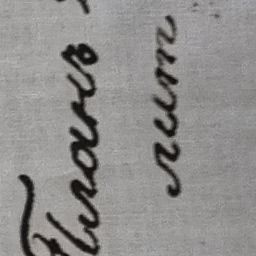 Планъ
лит